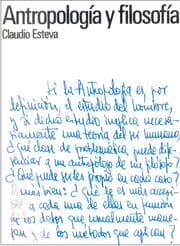 Antropología y filosofía
Claudio Esteva
Si la Antropología es, por
definición, el estudio del hombre,
y si dicho estudio implica necesa-
riamente una teoría del ser humano,
¿qué clase de problemática puede dife-
renciar a un antropólogo de un filósofo?
¿Qué puede serles propio en cada caso? O
más bien: ¿Qué le es más accesi-
ble a cada una de ellas en función
de los datos que usualmente mane-
jan y de los métodos que aplican?